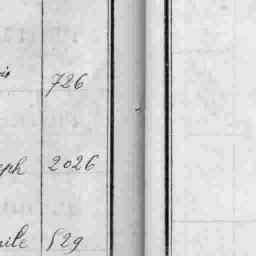 is 726
eph 2026
ile 529